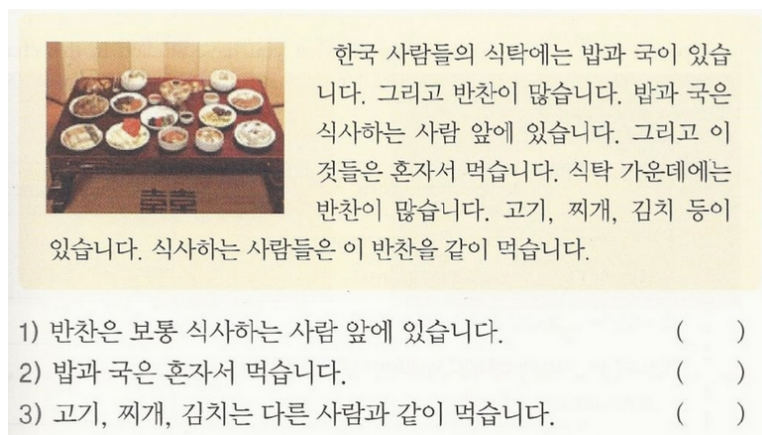 한국 사람들의 식탁에는 밥과 국이 있습
니다. 그리고 반찬이 많습니다. 밥과 국은
식사하는 사람 앞에 있습니다. 그리고 이
것들은 혼자서 먹습니다. 식탁 가운데에는
반찬이 많습니다. 고기, 찌개, 김치 등이
있습니다. 식사하는 사람들은 이 반찬을 같이 먹습니다.
1) 반찬은 보통 식사하는 사람 앞에 있습니다. ( )
2) 밥과 국은 혼자서 먹습니다. ( )
3) 고기, 찌개, 김치는 다른 사람과 같이 먹습니다. ( )